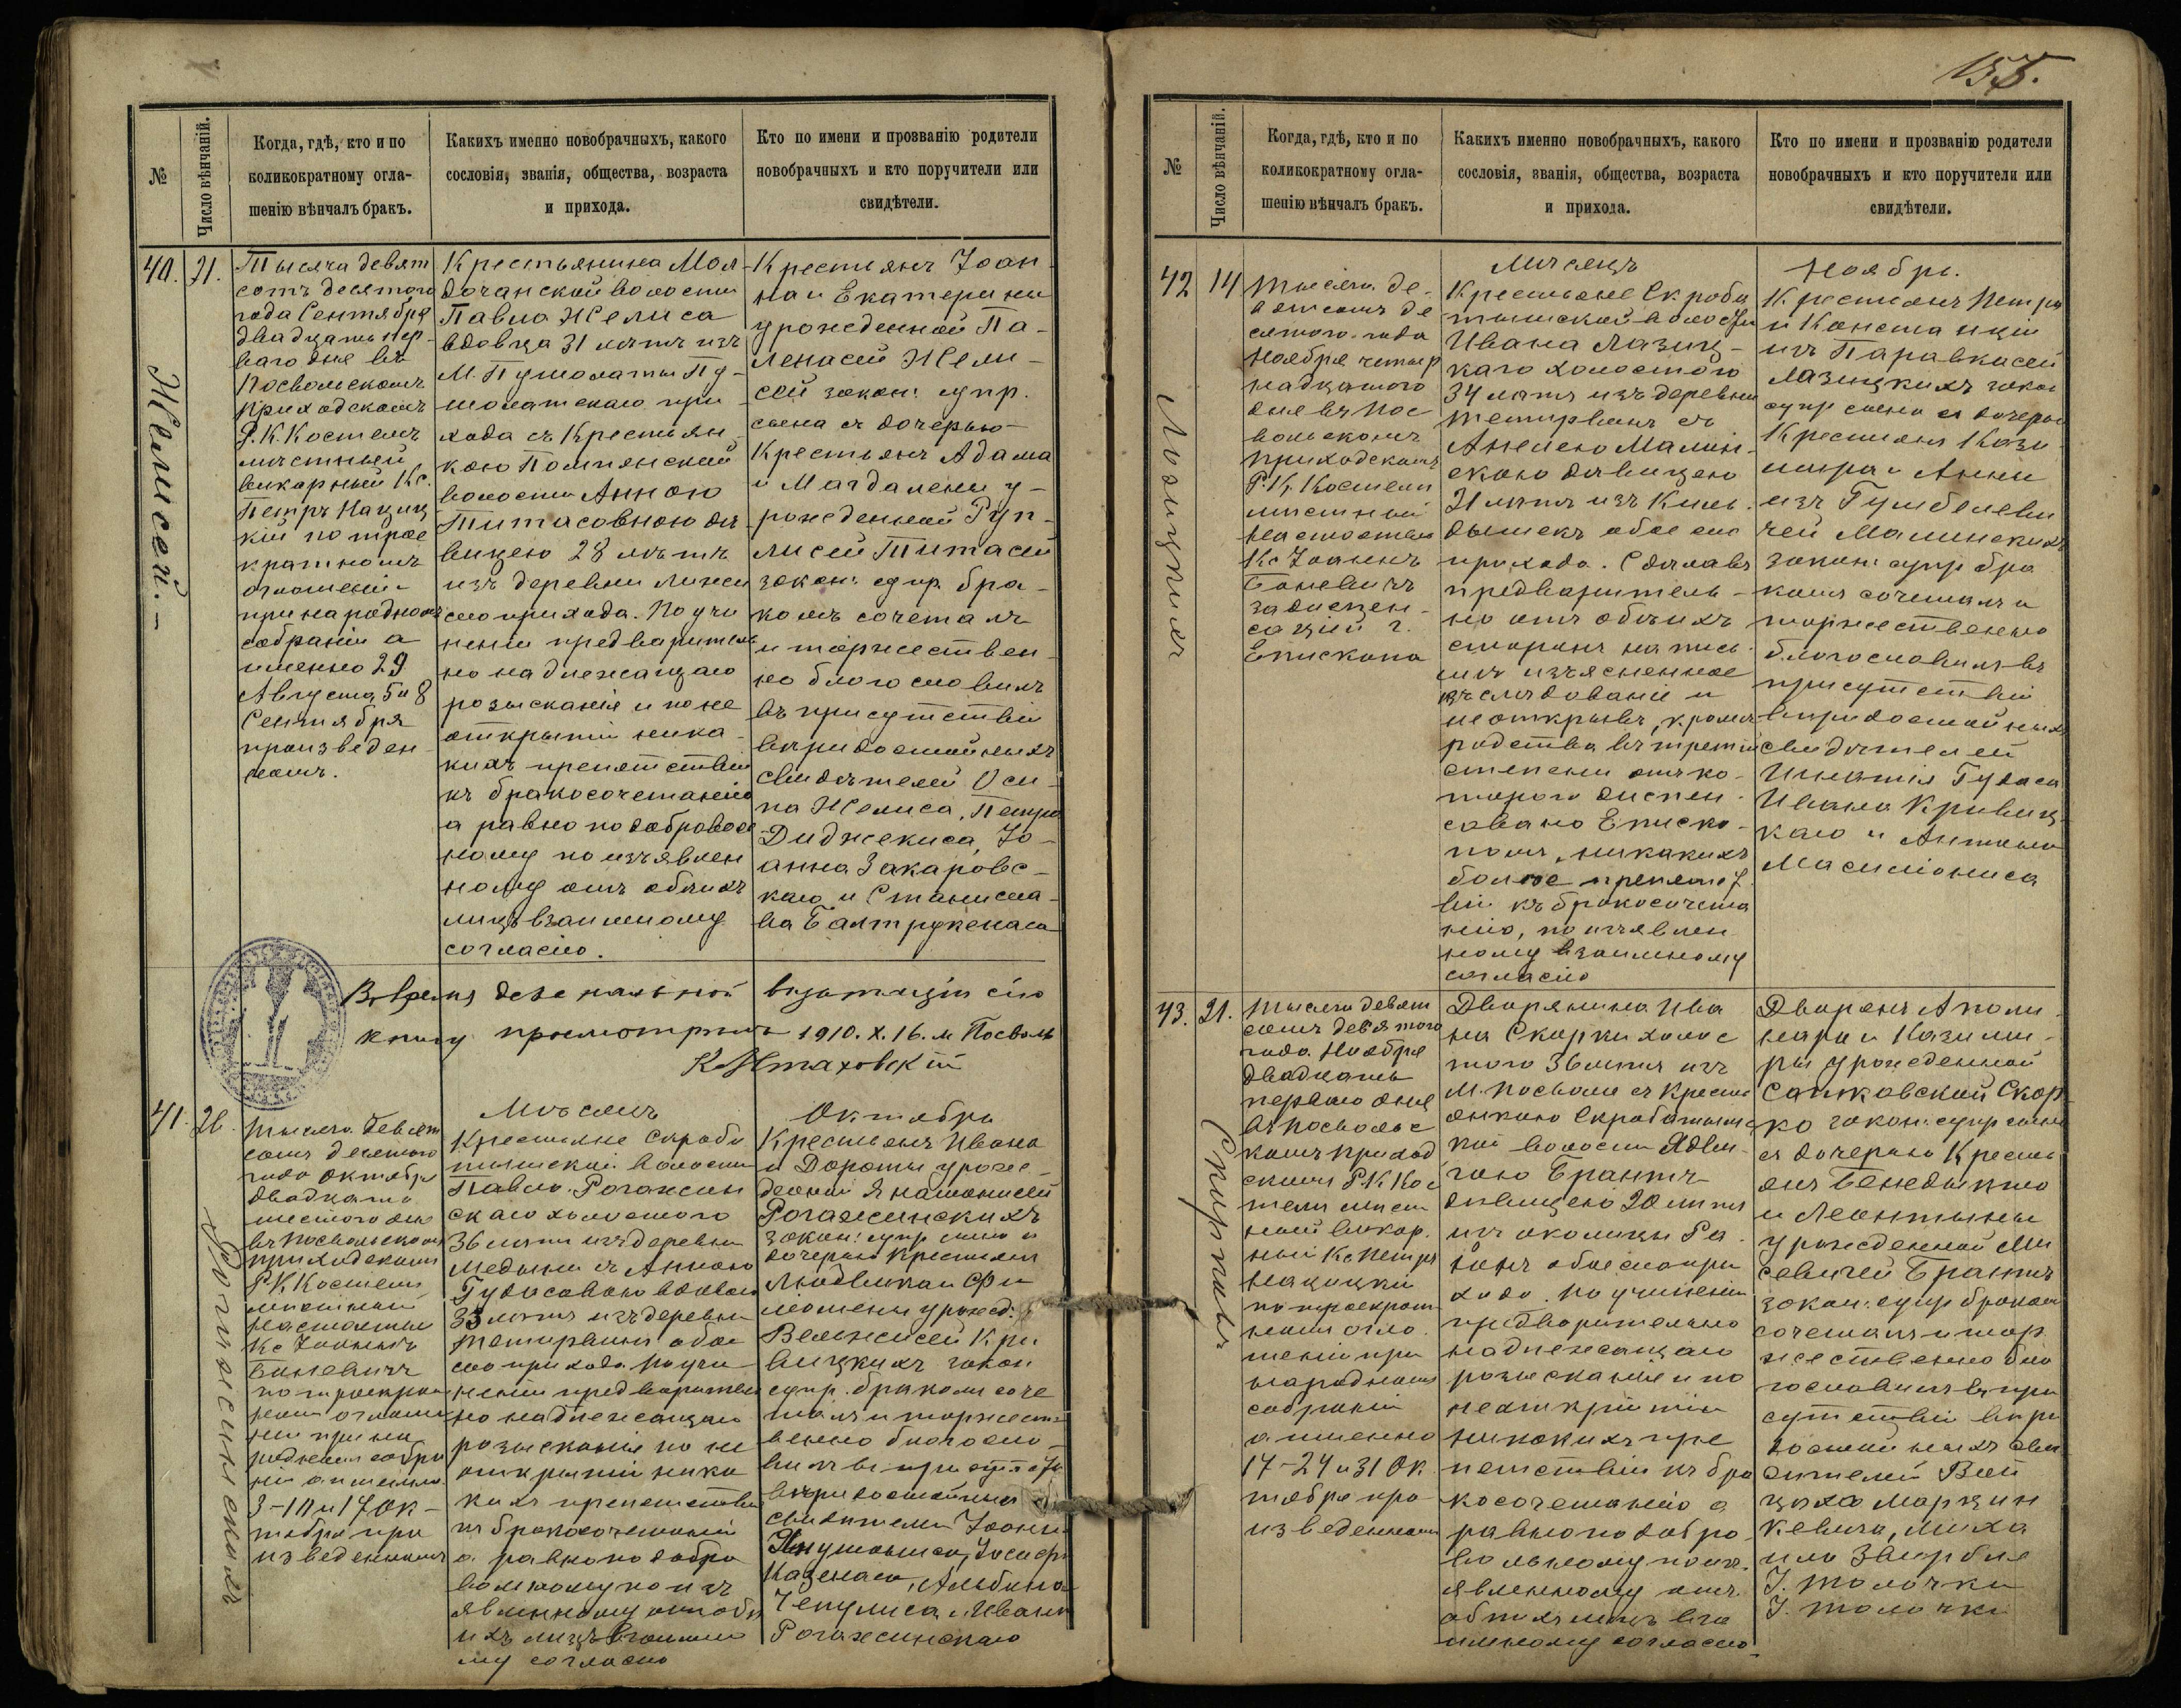 155.
№
Число вѣнчаній.
Когда, гдѣ, кто и по
коликократному огла-
шенію вѣнчалъ бракъ.
Какихъ именно новобрачныхъ, какого
сословія, званія, общества, возраста
и прихода.
Кто по имени и прозванію родители
новобрачныхъ и кто поручители или
свидѣтели.
40.
21.
Желисей.-
Тысяча девят
сотъ десятого
года Сентября
двадцать пер-
ваго дня въ
Посвольскомъ
приходскомъ
Р. К. Костелѣ
мѣстный
викарный Кс.
Петръ Нациц
кій по трое
кратномъ
оглашеніи
при народномъ
собраніи а
именно 29
Августа, 5 и 8
Сентября
произведен-
номъ.
Крестьянина Мол-
дочанской волости
Павла Желиса
вдовца 31 лѣтъ изъ
М. Пумолаты Пу-
молатскаго при-
хода съ Крестьян-
кою Помпянской
волости Анною
Титасовною дѣ-
вицею 28 лѣтъ
изъ деревни
сего прихода. По учи
неніи предваритель
но надлежащаго
розысканія и по не
открытіи ника-
кихъ препятствій
къ бракосочетанію
а равно по доброволь
ному по изъявлен
ному отъ обѣихъ
лицъ взаимному
согласію.
Крестьянъ Іоан-
на и Екатерины
урожденной Па-
ленасей Жели-
сей закон. супр.
сына съ дочерью
Крестьянъ Адама
и Магдалены у-
рожденной Руп-
лисей Титасей
закон. супр. бра-
комъ сочеталъ
и торжествен-
но благословилъ
въ присутствіи
вѣридостойныхъ
свидѣтелей Оси-
па Желиса, Петра
Диджекиса, Іо-
анна Закаровс-
каго и Станисла-
ва Балтрукенаса
Во время деканальной визитаціи сію
книгу просмотрѣлъ 1910. X. 16. м. Посволь
41.
26.
Рогажинскихъ
Мѣсяцъ
Октябрь
Тысяча девят
сотъ десятого
года Октября
двадцать
шестого дня
въ Посвольскомъ
приходскомъ
Р. К. Костелѣ
мѣстный
настоятель
Кс. Іоаннъ
Баневичъ
по троекрат
номъ оглаше
ніи при на
родномъ собра
ніи а именно
3-10 и 17 Ок-
тября про
изведенномъ
Крестьяне Скроби
тышской волости
Павла Рогажин
скаго холостого
36 лѣтъ изъ деревни
Медыни съ Анною
Гудасовою вдовою
33 лѣтъ изъ деревни
Тетирвины обое
сего прихода. По учи
неніи предваритель
но надлежащаго
розысканія по не
открытіи ника
кихъ препятствій
къ бракосочетанію
а равно по добро
вольному по изъ
явленному отъ обѣ
ихъ лицъ взаимно
му согласію
Крестьянъ Ивана
и Дороты урож-
денной Янашонисей
Рогажинскихъ
закон. супр. сына съ
дочерью Крестьянъ
Людвика и Фи
ломены урожд.
Велжисей Кри
вицкихъ закон
супр. бракомъ соче
талъ и торжест-
венно благосло-
вилъ въ присутст
вѣридостойныхъ
свидѣтелей Іоанна
Янушониса, Іосифа
Казенаса, Альбина
Чепулиса и Ивана
Рогажинскаго
№
Число вѣнчаній.
Когда, гдѣ, кто и по
коликократному огла-
шенію вѣнчалъ бракъ.
Какихъ именно новобрачныхъ, какого
сословія, званія, общества, возраста
и прихода.
Кто по имени и прозванію родители
новобрачныхъ и кто поручители или
свидѣтели.
42
14
Лазицкихъ
Мѣсяцъ
Ноябрь.
Тысяча де-
вятсотъ де
сятого года
Ноября четыр
надцатого
дня въ Пос
вольскомъ
приходскомъ
Р. К. Костелѣ
мѣстный
настоятель
Кс. Іоаннъ
Баневичъ
за диспен-
сацій г.
Епископа
Крестьяне Скроби
тышской волости
Ивана Лазиц-
каго холостого
34 лѣтъ изъ деревни
Тетирвины съ
Анелею Малин-
скою дѣвицею
21 лѣтъ изъ Кинь-
дышекъ обое сего
прихода. Сдѣлавъ
предваритель-
но отъ обѣихъ
сторонъ на пись-
мѣ изъясненное
изслѣдованіе и
не открывъ, кромѣ
родства въ третьей
степени отъ ко-
тораго диспен-
совано Еписко-
помъ, никакихъ
более препятст
вій къ бракосочета
нію, по изъявлен
ному взаимному
согласію
Крестьянъ Петра
и Констанціи
изъ Паравкасей
Лазицкихъ закон
супр сына съ дочерью
Крестьянъ Кази
мира и Анны
изъ Гумбелеви
чей Малинскихъ
закон. супр бра
комъ сочеталъ и
торжественно
благословилъ въ
присутствіи
вѣридостойныхъ
свидѣтелей
Игнатія Гудаса
Ивана Кривиц
каго и Антона
Масилюниса
43.
21.
Скорковъ
Тысяча девят
сотъ десятого
года Ноября
двадцать
перваго дня
въ Посвольс
комъ приход
скомъ Р. К. Кос
телѣ мѣст
ный викар
ный Кс Петръ
Нацицкій
по троекрат
номъ огла
шеніи при
народномъ
собраніи
а именно
17-24 и 31 Ок
тября про
изведенномъ
Дворянина Ива
на Скорки холос
того 36 лѣтъ изъ
М. Посволи съ Кресть
янкою Скробитышс
кой волости Ядви-
гою Брантъ
дѣвицею 20 лѣтъ
изъ околицы Ра-
обое сего при
хода. По учиненіи
предварительно
надлежащаго
розысканія и по
неоткрытіи
никакихъ пре
пятствій къ бра
косочетанію а
равно по добро
вольному по изъ-
явленному отъ
обѣихъ лицъ вза
имному согласію.
Дворянъ Аполи
нара и Казими-
ры урожденной
Сапковской Скор
ко закон. супр сына
съ дочерью Кресть
янъ Бенедыкта
и Леонтыны
урожденной Ми
севичей Брантъ
закон. супр бракомъ
сочеталъ и тор
жественно бла
гословилъ въ при
сутствіи вѣри
достойныхъ сви
дѣтелей Вой
цѣха Марцин
кевича, Миха
ила Звирбля
І. Толочки
І. Толочки